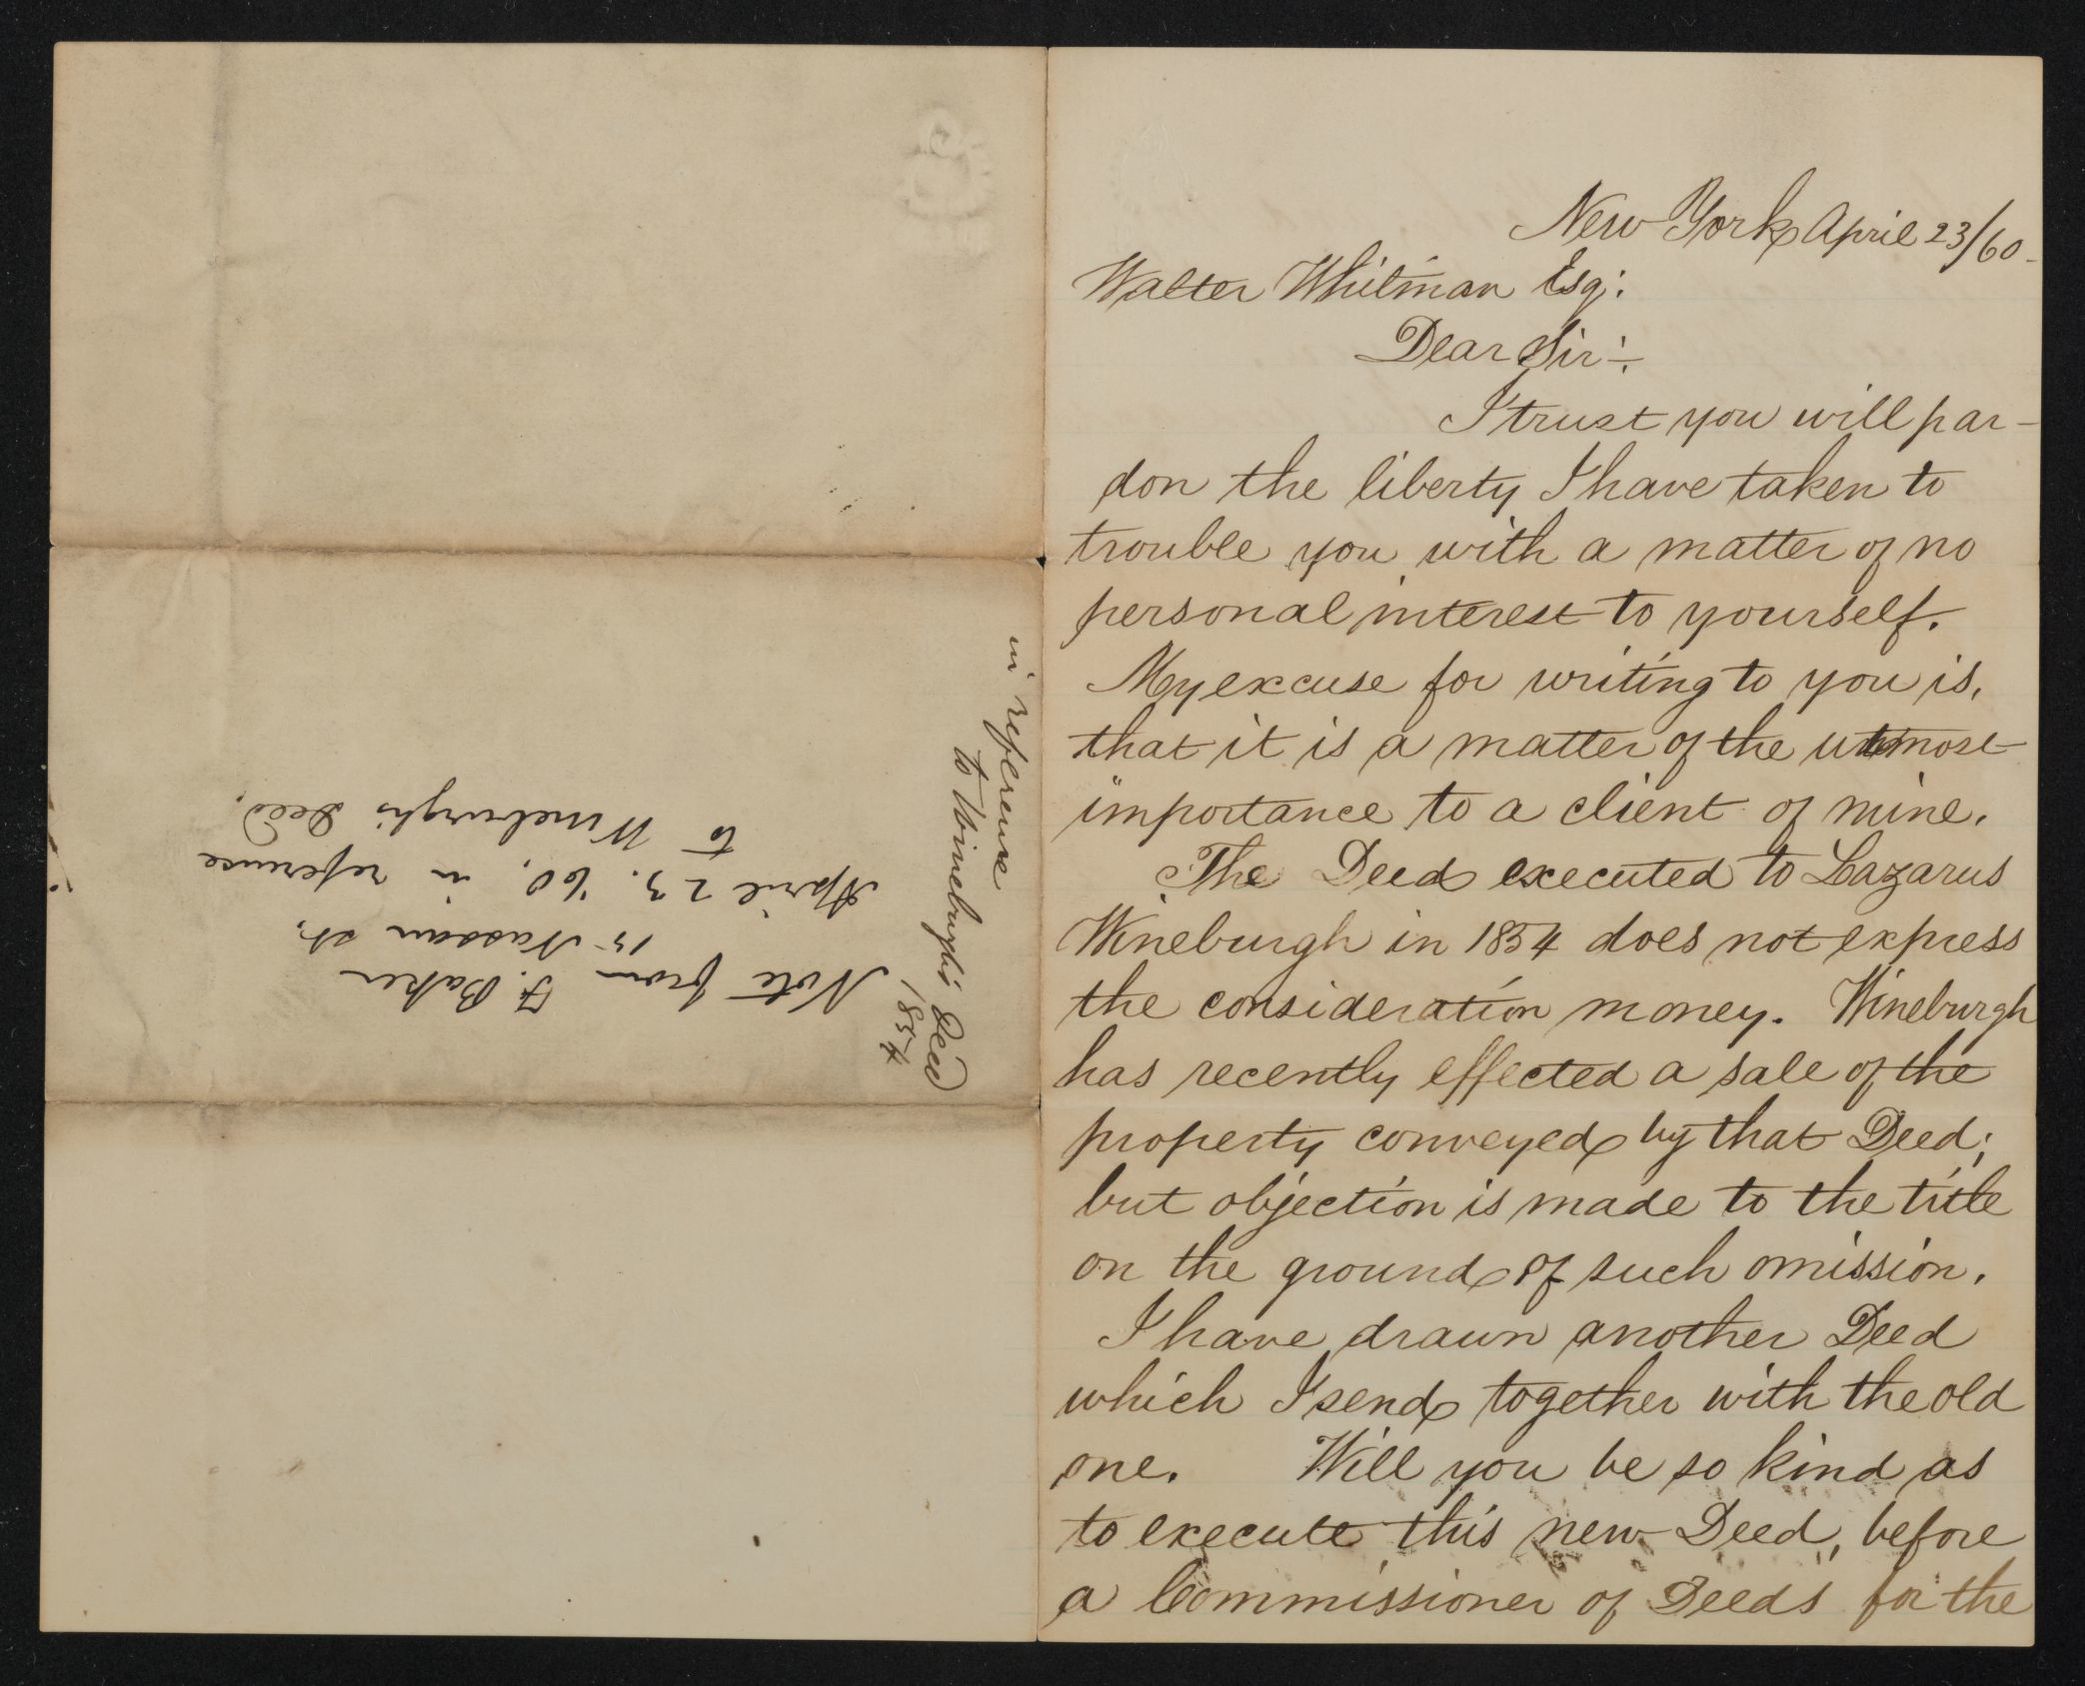 New York April 23/60
Walter Whitman Esq:
Dear Sir:
I trust you will par-
don the liberty I have taken to
trouble you with a matter of no
personal interest to yourself.
My excuse for writing to you is,
that it is a matter of the utmost
importance to a client of mine.
The Deed executed to Lazarus
Wineburgh in 1854 does not express
the consideration money. Wineburgh
has recently effected a sale of the
property conveyed by that Deed;
but objection is made to the title
on the ground of such omission.
I have drawn another Deed
which I send together with the old
one. Will you be so kind as
to execute this new Deed, before
a Commissioner of Deeds for the
Note from F. Baker
15 Nassau st.
April 23. '60, in reference
to Wineburgh's Deed.
in reference
to Wineburgh's Deed
1854